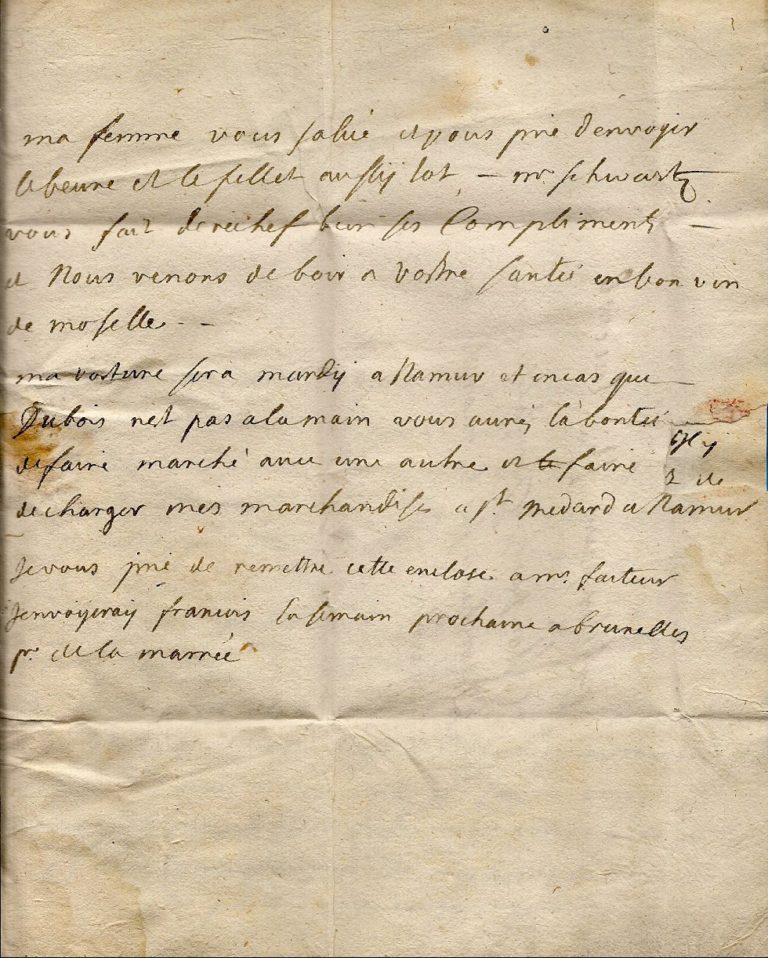 ma femme vous salüe et vous prie d'envoyer
le beure et le fillet aussy tot — mr. schwartz
vous fait derechef bien ses Compliments —
et Nous venons de boir a vostre santée en bon vin
de moselle. —
ma voiture sera mardy a Namur et en cas que
Dubois nest pas a la main vous aurez la bontée
de faire marché avec une autre et le faire
decharger mes marchandises a St. medard a Namur
Je vous prie de remettre cette enclose a mr. facteur
Jenvoyeray francois la semain prochaine a bruxelles
pr. de la marrée